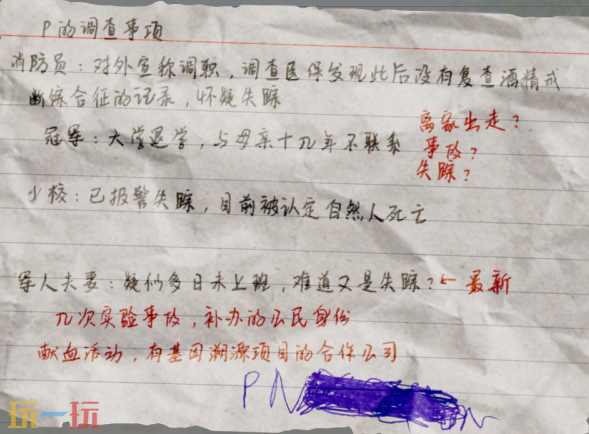 P的调查事项
消防员：对外宣称调职，调查医保发现此后没有复查酒精戒
断综合征的记录，怀疑失踪
冠军：大学退学，与母亲十几年不联系
离家出走？
事故？
失踪？
少校：已报警失踪，目前被认定自然人死亡
军人夫妻：疑似多日未上班，难道又是失踪？←最新
几次实验事故，补办的公民身份
献血活动，有基因溯源项目的合作公司
PN
玩一玩